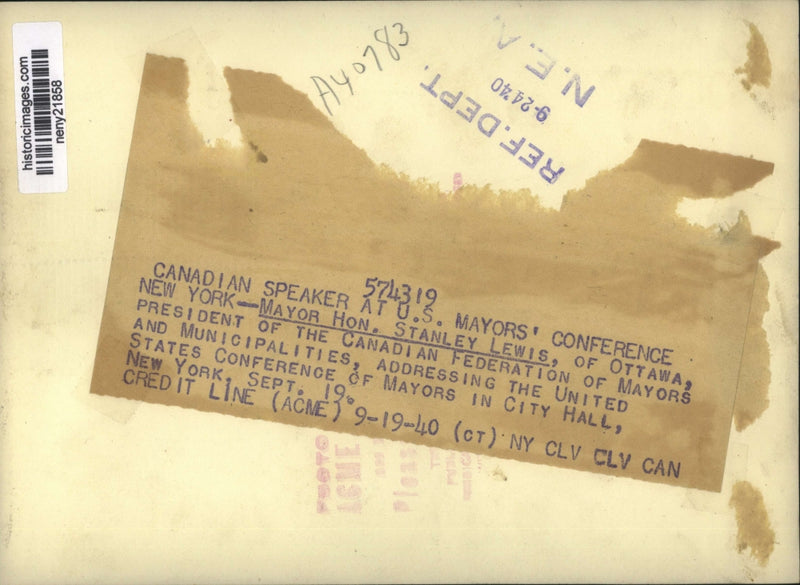 historicimages.com
neny21858
A40783
N.E.A.
9-24-40
REF. DEPT.
574319
CANADIAN SPEAKER AT U.S. MAYORS' CONFERENCE
NEW YORK—MAYOR HON. STANLEY LEWIS, OF OTTAWA,
PRESIDENT OF THE CANADIAN FEDERATION OF MAYORS
AND MUNICIPALITIES, ADDRESSING THE UNITED
STATES CONFERENCE OF MAYORS IN CITY HALL,
NEW YORK, SEPT. 19.
CREDIT LINE (ACME) 9-19-40 (CT) NY CLV CLV CAN
PHOTO
ACME
Pleas